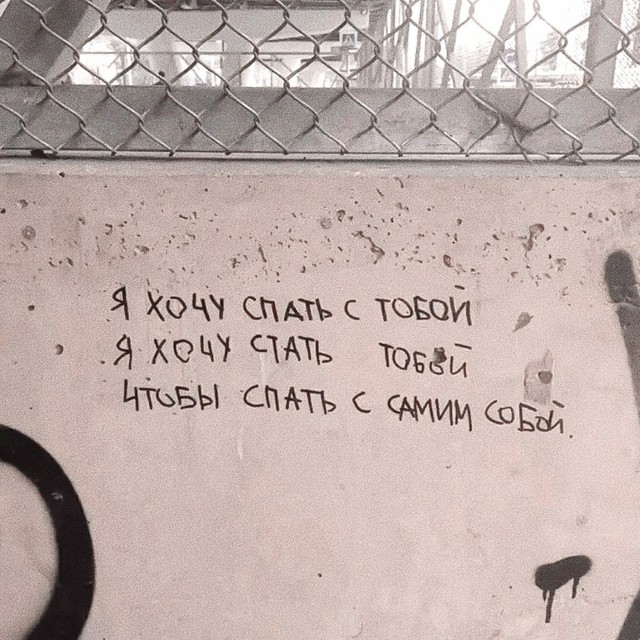 Я ХОЧУ СПАТЬ С ТОБОЙ
Я ХОЧУ СТАТЬ ТОБОЙ
ЧТОБЫ СПАТЬ С САМИМ СОБОЙ.